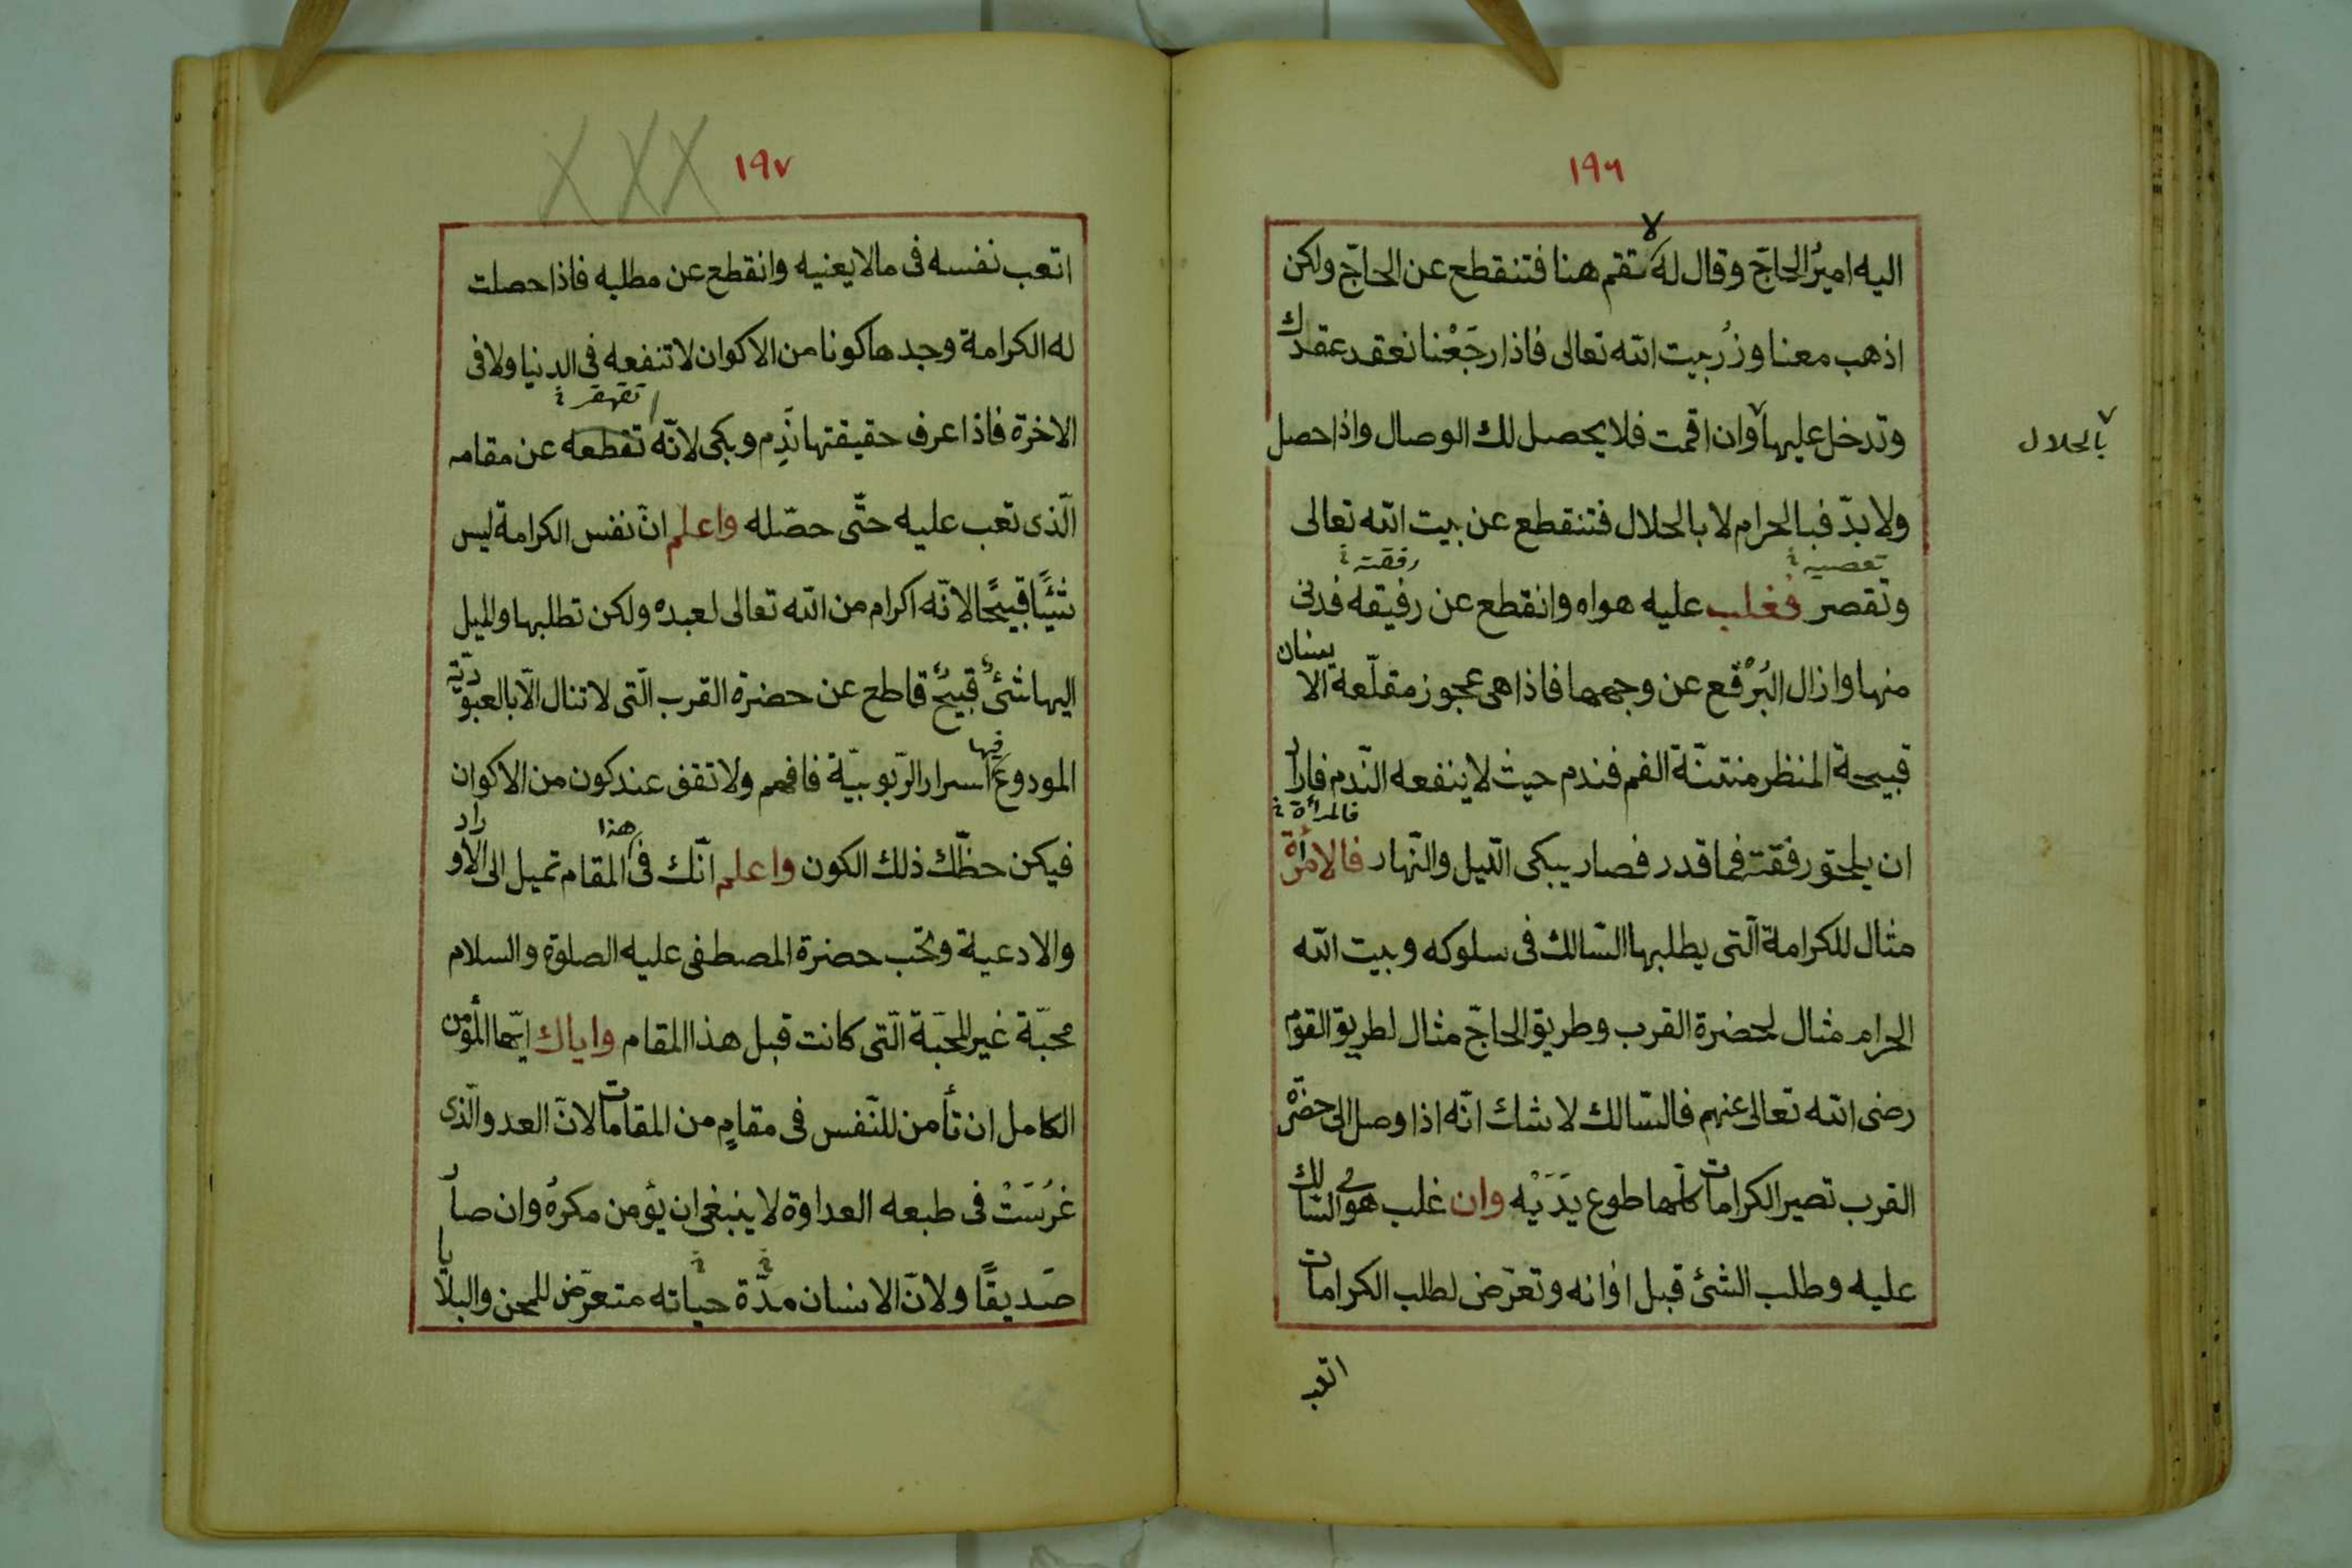 ١٩٦
اليه اميرُ الحاجّ وقال له لا تقم هنا فتنقطع عن الحاجّ ولكن
اذهب معنا وزُر بيت الله تعالى فاذا رجَعْنا نعقد عقدك
وتدخل عليها وان اقمت فلا يحصل لك الوصال واذا حصل
بالحلال
ولا بدّ فبالحرام لا بالحلال فتنقطع عن بيت الله تعالى
تعصيه خ رفقته خ
وتقصر فغلب عليه هواه وانقطع عن رفيقه فدنى
منها وازال البُرْقع عن وجهها فاذا هى عجوز مقلّعة الاسنان
قبيحة المنظر منتنّة الفم فندم حيث لا ينفعه النّدم فاراد
فالمرأة خ
ان يلحق رفقته فما قدر فصار يبكى اللّيل والنّهار فالامرأة
مثال للكرامة الّتى يطلبها السّالك فى سلوكه وبيت الله
الحرام مثال لحضرة القرب وطريق الحاجّ مثال لطريق القوم
رضى الله تعالى عنهم فالسّالك لا شك انّه اذا وصل الى حضرة
القرب تصير الكرامات كلّها طوع يَدَيْه وان غلب هوى السّالك
عليه وطلب الشئ قبل اوانه وتعرّض لطلب الكرامات
اتعب
١٩٧
اتعب نفسه فى مالا يعنيه وانقطع عن مطلبه فاذا حصلت
له الكرامة وجدها كونا من الاكوان لا تنفعه فى الدنيا ولا فى
تقهقر خ
الاخرة فاذا عرف حقيقتها نَدِم وبكى لانّه تقطعه عن مقامه
الّذى تعب عليه حتّى حصّله واعلم انّ نفس الكرامة ليس
شئًا قبيحًا لانّه اكرام من الله تعالى لعبده ولكن تطلبها والميل
اليها شئٌ قبيحٌ قاطع عن حضرة القرب الّتى لا تنال الّا بالعبوديّة
المودوع فيها اسرار الرّبوبيّة فافهم ولا تقف عند كون من الاكوان
فيكن حظّك ذلك الكون واعلم انّك فى هذا المقام تميل الى الاوراد
والادعية وتحّب حضرة المصطفى عليه الصلوة والسلام
محبّة غير المحبّة الّتى كانت قبل هذا المقام واياك ايّها المؤمن
الكامل ان تأمن للنّفس فى مقامٍ من المقامات لانّ العدو الّذى
غرُسَتْ فى طبعه العداوة لا ينبغى ان يؤمن مكرهُ وان صار
صَديقًا ولانّ الانسان مدّة حياته متعرّض للمحن والبلايا